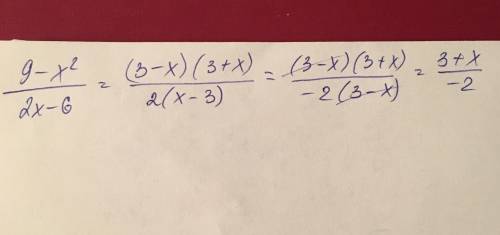 9-x²/2x-6 = (3-x)(3+x)/2(x-3) = (3-x)(3+x)/-2(3-x) = 3+x/-2